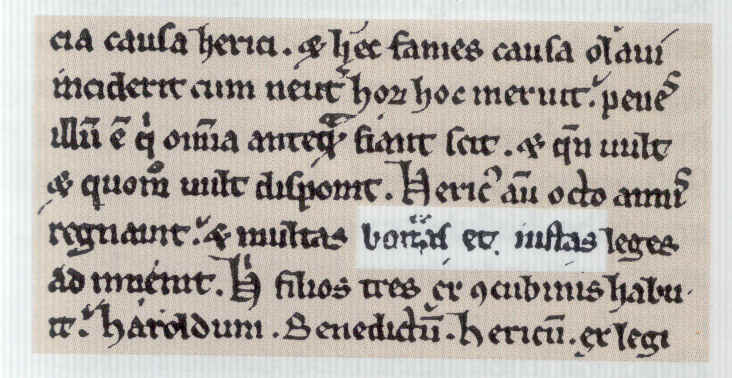 cia causa herici. & hec fames causa olaui
inciderit cum neut᷑ horꝝ hoc meruit. peneˢ
illū ē qͥ om̅ia anteqᷓ fiant scit. & qn̄ uult
& quom̊ uult disponit. Hericꝰ aū octo anniˢ
regnauit. & multas bonas et iustas leges
ad inuenit. Hͥ filios tres ex ꝯcubinis habu
it. haroldum. Benedictū. hericū. ex legi